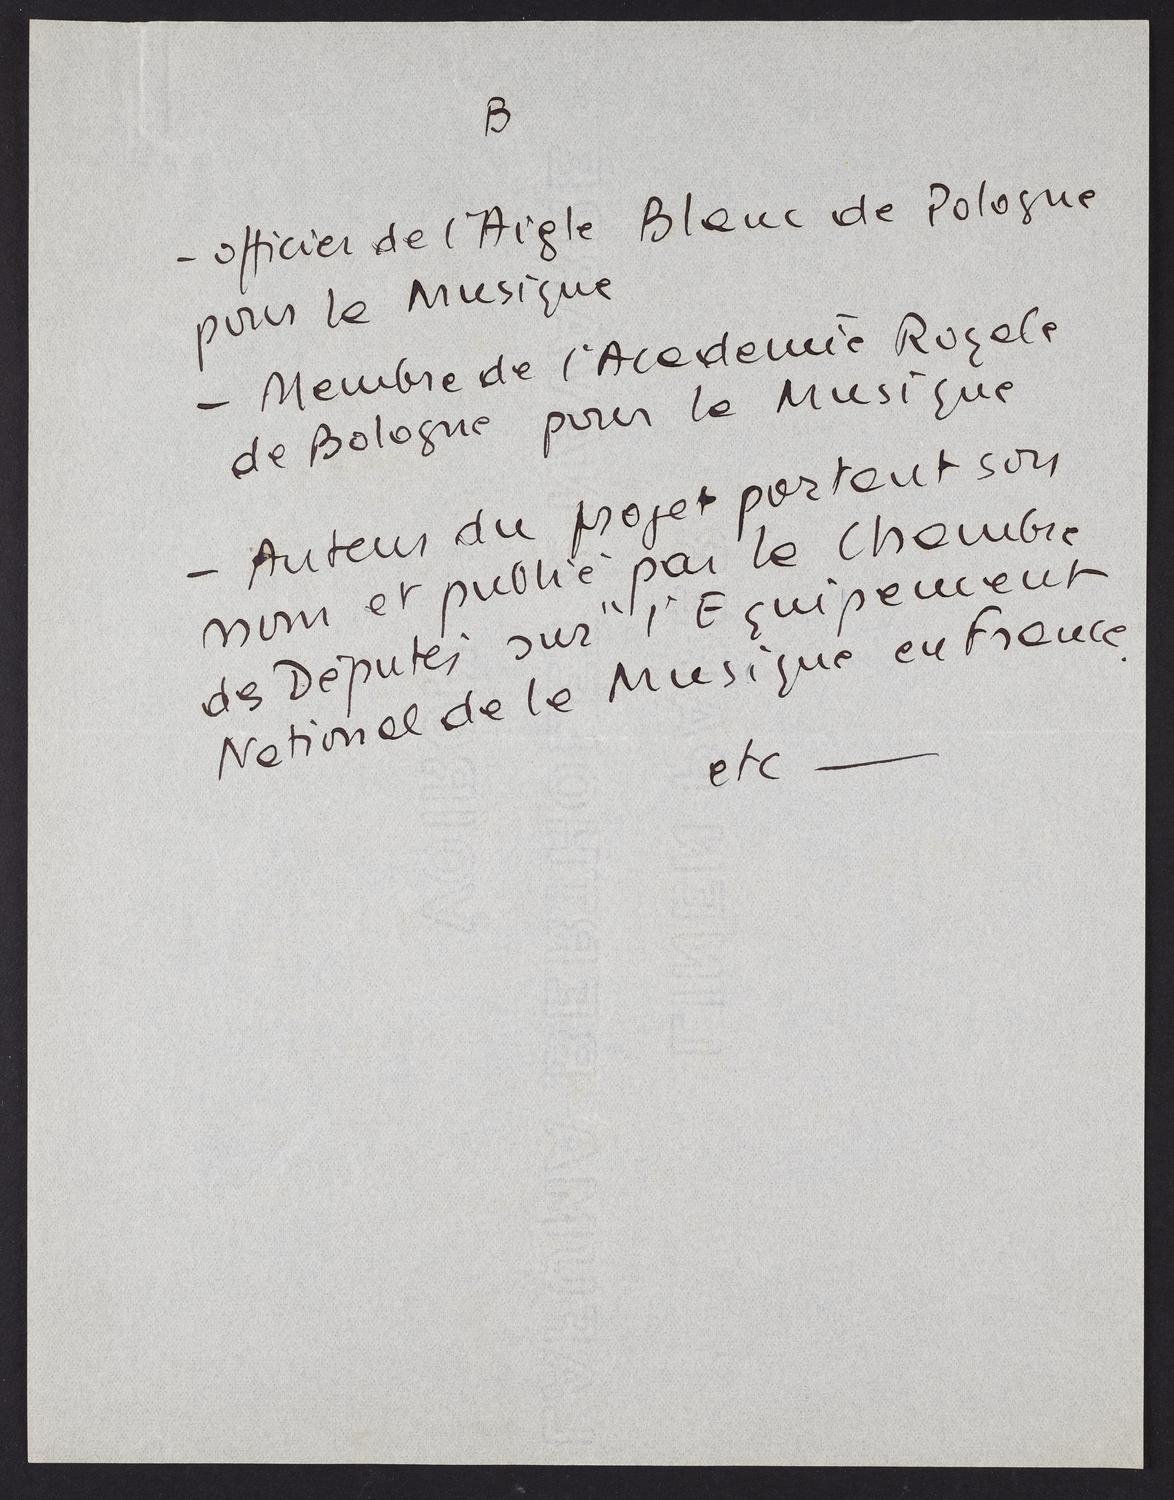 B
- officier de l'Aigle Blanc de Pologne
pour la Musique
- Membre de l'Academie Royale
de Bologne pour la Musique
- Auteur du projet portant son
nom et publié par la Chambre
des Députés sur "l'Equipement
National de la Musique en France.
etc —